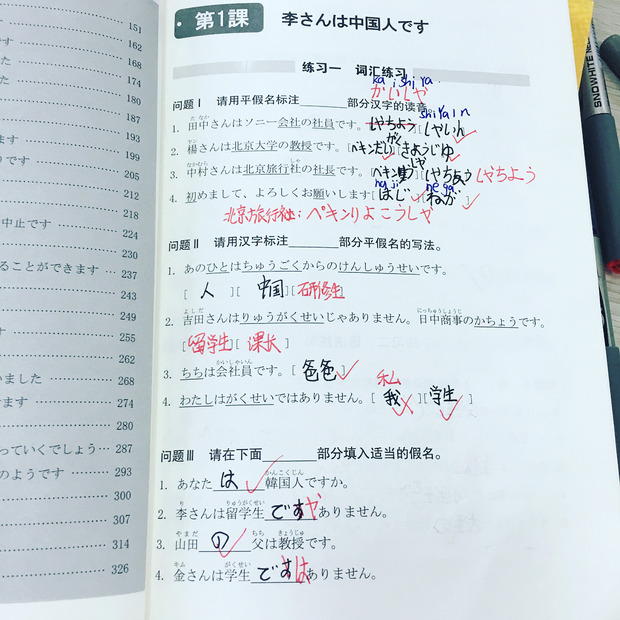 151
162
168
177
179
184
191
193
199
中止です
230
ることができます
237
243
249
252
いました
268
けます
274
276
287
っていくでしょう
285
のようです
293
300
307
314
326
第1課 李さんは中国人です
练习一 词汇练习
kaishiya
かいしや
shiyain
问题Ⅰ 请用平假名标注______部分汉字的读音
1. 田中さんはソニー会社の社員です。[しやちよう][しやいん]
2. 楊さんは北京大学の教授です。[ペキンだいがく][きようじゆ]
3. 中村さんは北京旅行社の社長です。[ペキン しや][しやちよう] しやちよう
haji nega
4. 初めまして、よろしくお願いします[はじ][ねが]
北京旅行社:ペキンりよこうしや
问题Ⅱ 请用汉字标注______部分平假名的写法。
1. あのひとはちゅうごくからのけんしゅうせいです。
[人][中国][研修生]
よしだ にっちゅうしょうじ
2. 吉田さんはりゅうがくせいじゃありません。日中商事のかちょうです。
[留学生 课长]
かいしゃいん
3. ちちは会社員です。[爸爸]
私
4. わたしはがくせいではありません。[我][学生]
问题Ⅲ 请在下面______部分填入适当的假名。
かんこくじん
1. あなた は 韓国人ですか。
り りゅうがくせい
2. 李さんは留学生 ですや ありません。
やまだ ちち きょうじゅ
3. 山田 の 父は教授です。
キム がくせい
4. 金さんは学生 ですは ありません。
SINOWHITE